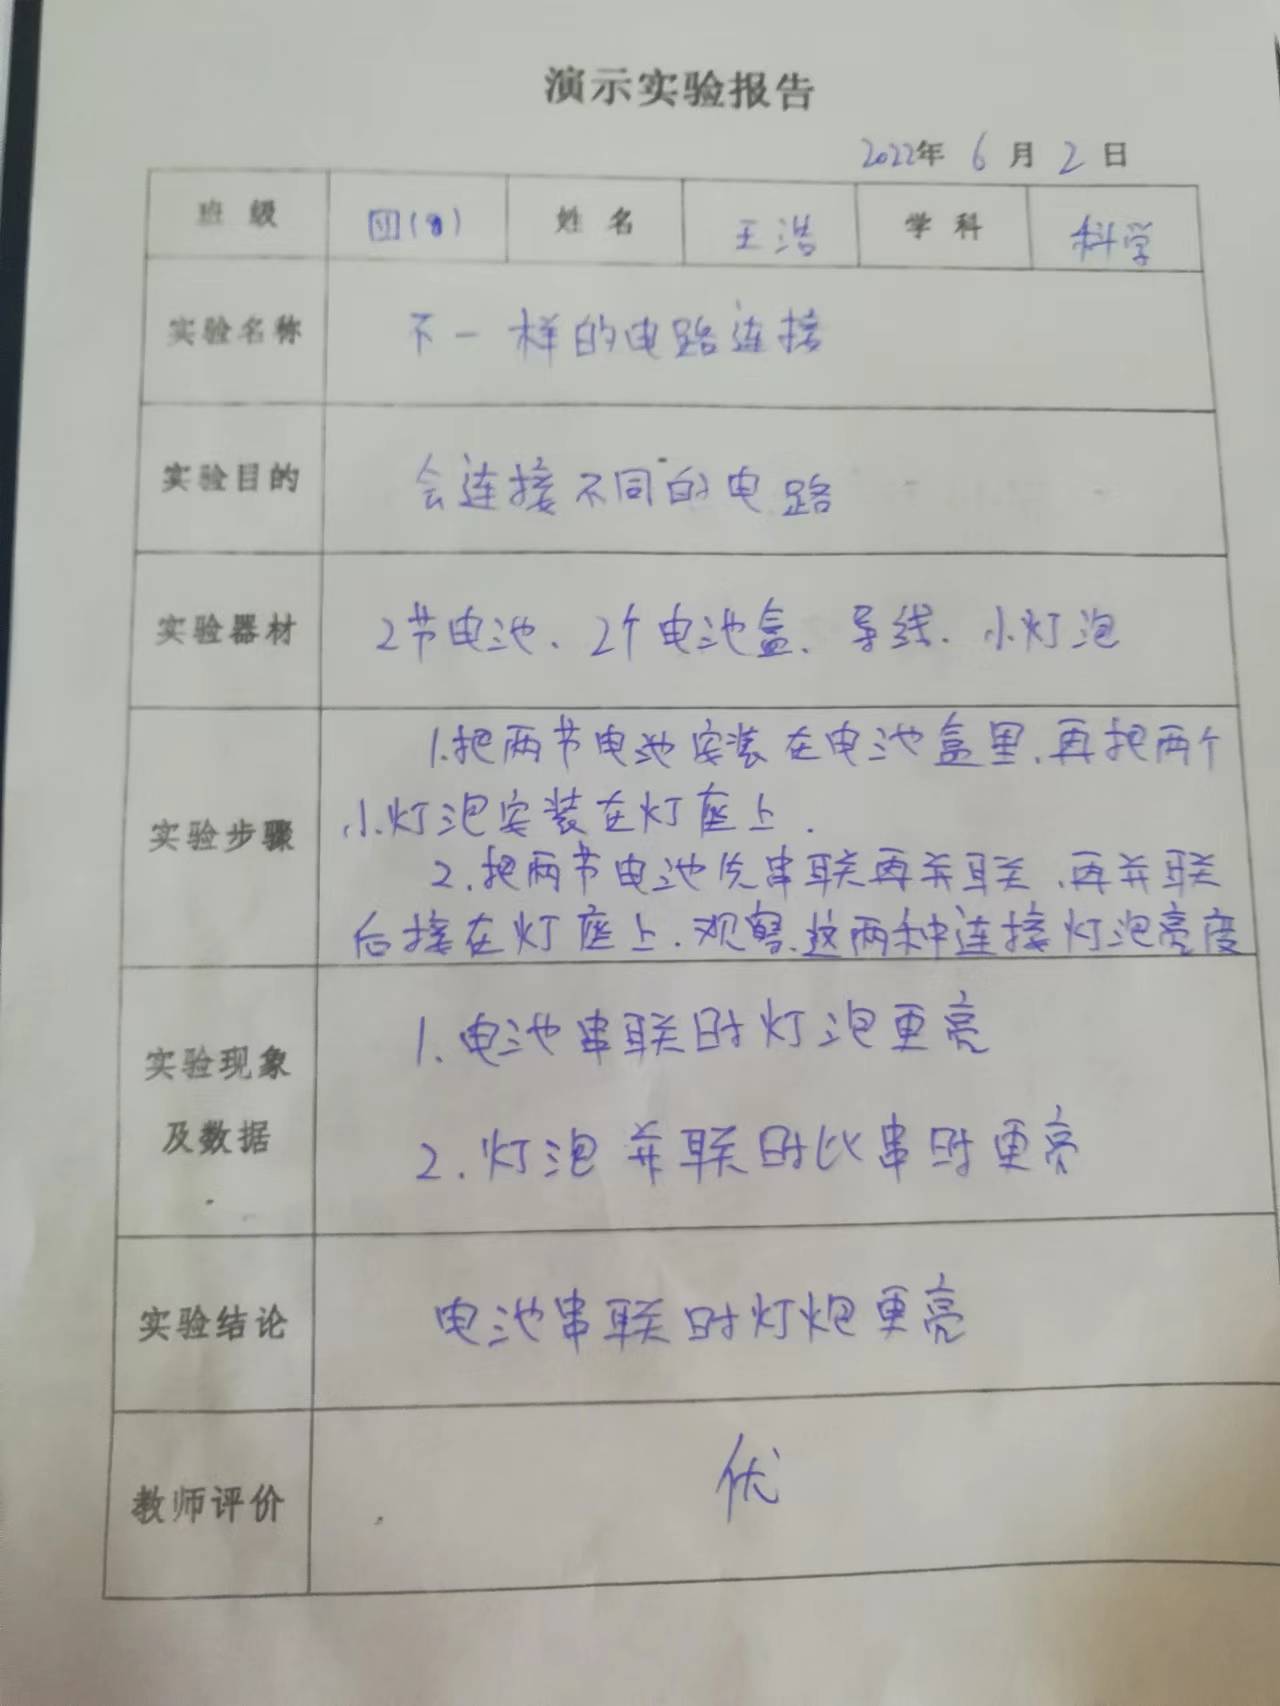 演示实验报告
2022年 6 月 2 日
班级 四( ) 姓名 王浩 学科 科学
实验名称 不一样的电路连接
实验目的 会连接不同的电路
实验器材 2节电池、2个电池盒、导线、小灯泡
实验步骤
1.把两节电池安装在电池盒里,再把两个
小灯泡安装在灯座上.
2.把两节电池先串联再并联,再并联
后接在灯座上.观察这两种连接灯泡亮度
实验现象
及数据
1.电池串联时灯泡更亮
2.灯泡并联时比串时更亮
实验结论 电池串联时灯炮更亮
教师评价 优